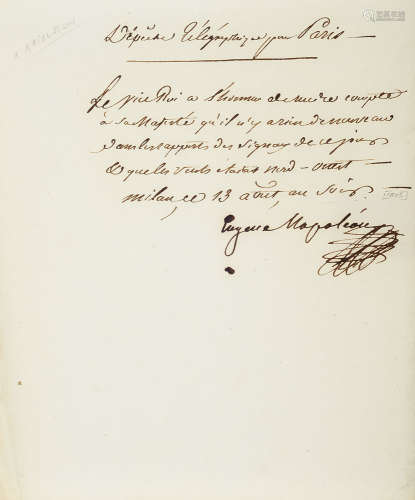 Dépêche télégraphique pour Paris
Le vice Roi a l'honneur de rendre compte
à Sa Majesté qu'il n'y a rien de nouveau
dans les rapports des signaux de ce jour
& que les vents étaient nord-ouest
milan, ce 13 août, au soir.
Eugène Napoléon